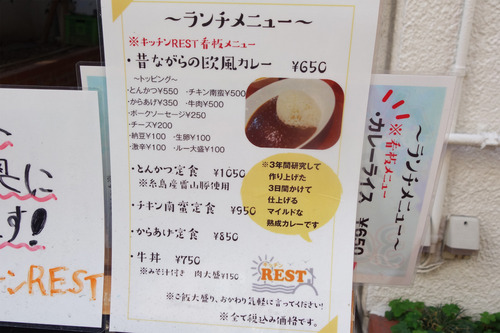 ～ランチメニュー～
※キッチンREST看板メニュー
・昔ながらの欧風カレー ¥650
～トッピング～
・とんかつ¥550 ・チキン南蛮¥500
・からあげ¥350 ・牛肉¥500
・ポークソーセージ¥250
・チーズ¥200
・納豆¥100 ・生卵¥100
・激辛¥100 ・ルー大盛¥100
・とんかつ定食 ¥1050
※糸島産雷山豚使用
・チキン南蛮定食 ¥950
・からあげ定食 ¥850
・牛丼 ¥750
※みそ汁付き 肉大盛¥150
※3年間研究して
作り上げた
3日間かけて
仕上げる
マイルドな
熟成カレーです
REST
※ご飯大盛り、おかわり気軽に言ってください!
※全て税込み価格です。
に
す!
ンREST
～ランチメニュー～
※看板メニュー
カレーライス ¥650